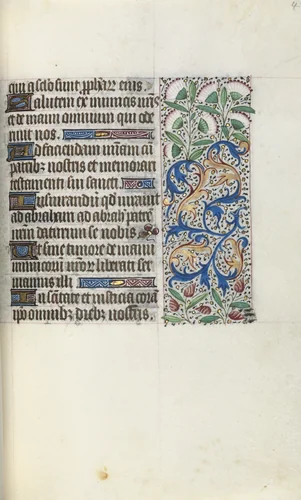 qui a seclo sunt ꝓphaꝝ eius.
Salutem ex inimicis nr̄is
et de manu omnium qui ode
runt nos.
Ad faciendam mīam cū
patribꝰ nostris et memorari
testamenti sui sancti.
Iusiurandū qđ iurauit
ad abraham
daturum se nobis.
Vt sine timore de manu
inimicoꝝ nr̄oꝝ liberati ser
uiamus illi.
In sc̄itate et iusticia corā
ip̄o omnibꝫ diebꝫ nostris.